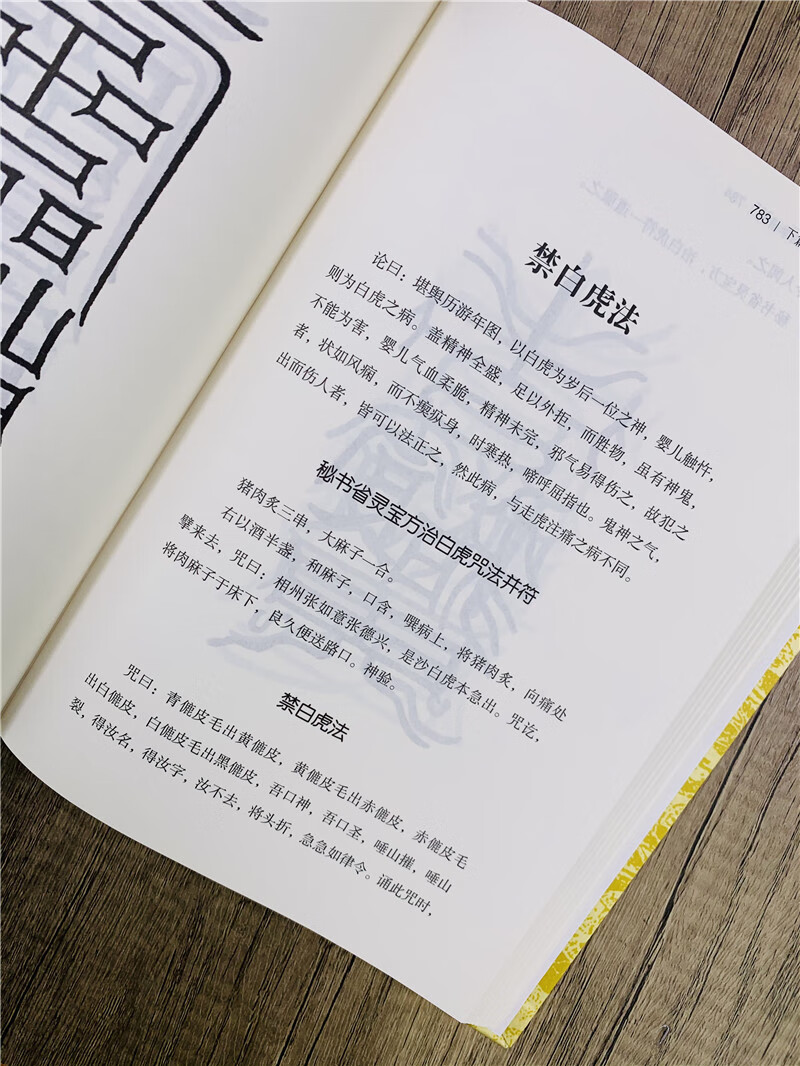 783 | 下
禁白虎法
论曰：堪舆历游年图，以白虎为岁后一位之神，婴儿触忤，
则为白虎之病。盖精神全盛，足以外拒，而胜物，虽有神鬼，
不能为害，婴儿气血柔脆，精神未完，邪气易得伤之，故犯之
者，状如风痫，而不瘈疭身，时寒热，啼呼屈指也。鬼神之气，
出而伤人者，皆可以法正之，然此病，与走虎注痛之病不同。
秘书省灵宝方治白虎咒法并符
猪肉炙三串，大麻子一合。
右以酒半盏，和麻子，口含，噀病上，将猪肉炙，向痛处
擘来去，咒曰：相州张如意张德兴，是沙白虎本急出。咒讫，
将肉麻子于床下，良久便送路口。神验。
禁白虎法
咒曰：青傂皮毛出黄傂皮，黄傂皮毛出赤傂皮，赤傂皮毛
出白傂皮，白傂皮毛出黑傂皮，吾口神，吾口圣，唾山摧，唾山
裂，得汝名，得汝字，汝不去，将头折，急急如律令。诵此咒时，